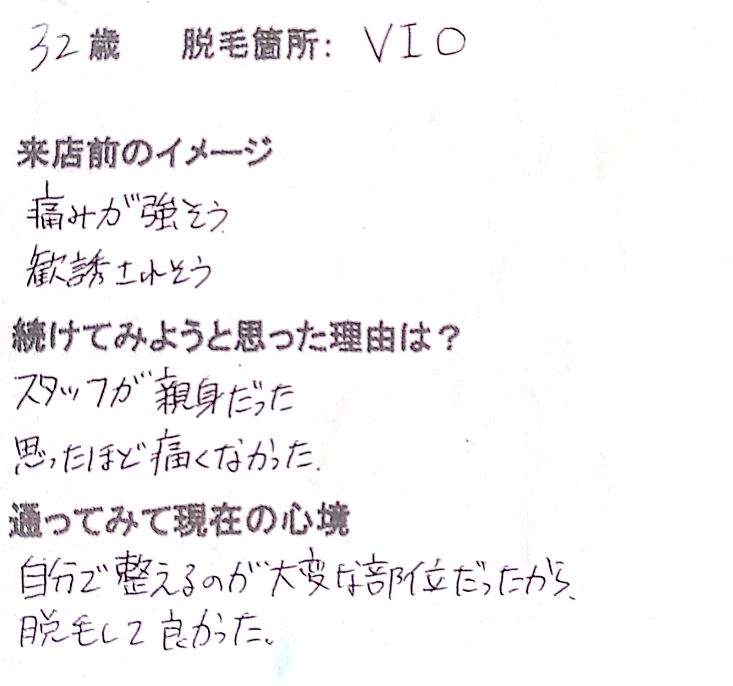 32歳 脱毛箇所: VIO
来店前のイメージ
痛みが強そう
歓誘されそう
続けてみようと思った理由は？
スタッフが親身だった
思ったほど痛くなかった.
通ってみて現在の心境
自分で整えるのが大変な部位だったから、
脱毛して良かった。